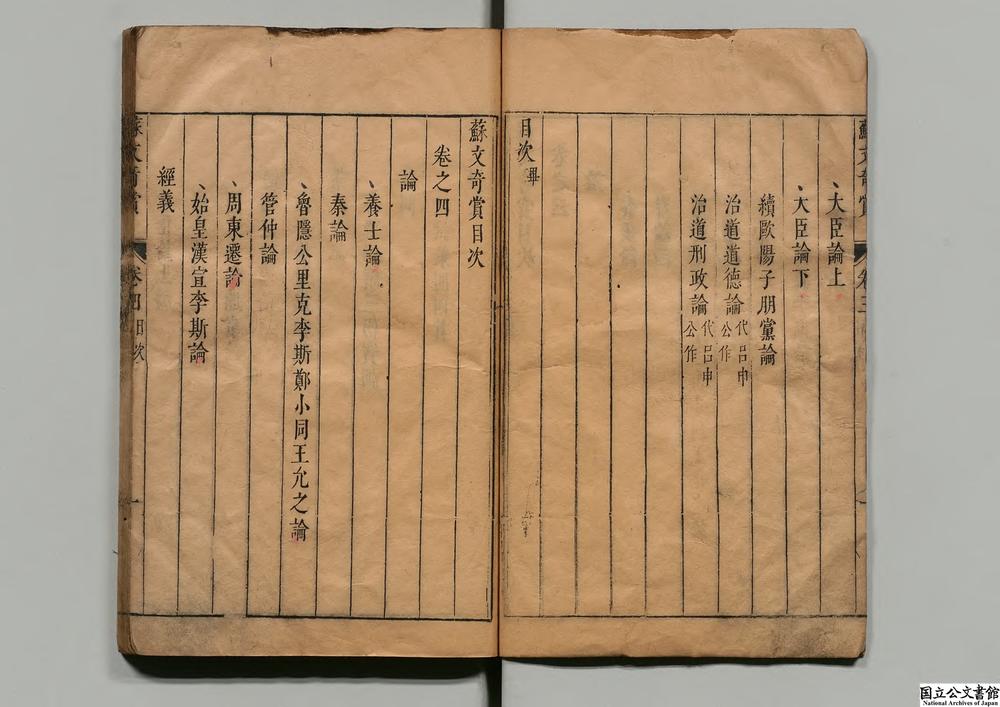 蘇文奇賞 卷三
、大臣論上
、大臣論下
續歐陽子朋黨論
治道道德論 代呂申公作
治道刑政論 代呂申公作
目次畢
蘇文奇賞目次
卷之四
論
、養士論
秦論
、魯隱公里克李斯鄭小同王允之論
管仲論
、周東遷論
、始皇漢宣李斯論
經義
蘇文奇賞 卷四目次 一
国立公文書館
National Archives of Japan